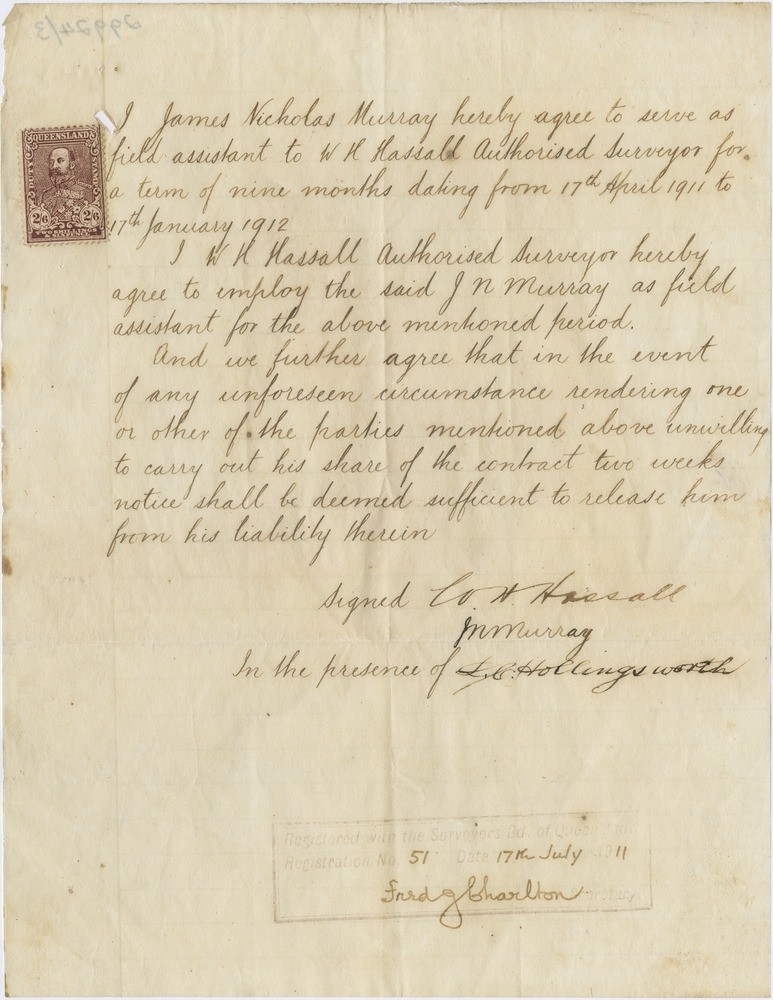 29924/3
QUEENSLAND
DUTY
STAMP
2/6 2/6
TWO SHILLINGS
I James Nicholas Murray hereby agree to serve as
field assistant to W H Hassall Authorised Surveyor for
a term of nine months dating from 17th April 1911 to
17th January 1912
I W H Hassall Authorised Surveyor hereby
agree to employ the said J N Murray as field
assistant for the above mentioned period.
And we further agree that in the event
of any unforeseen circumstance rendering one
or other of the parties mentioned above unwilling
to carry out his share of the contract two weeks
notice shall be deemed sufficient to release him
from his liability therein
Signed W. H. Hassall
JN Murray
In the presence of L. C. Hollingsworth
Registered with the Surveyors Bd. of
Registration No. 51 Date 17th July 1911
Fred G Charlton